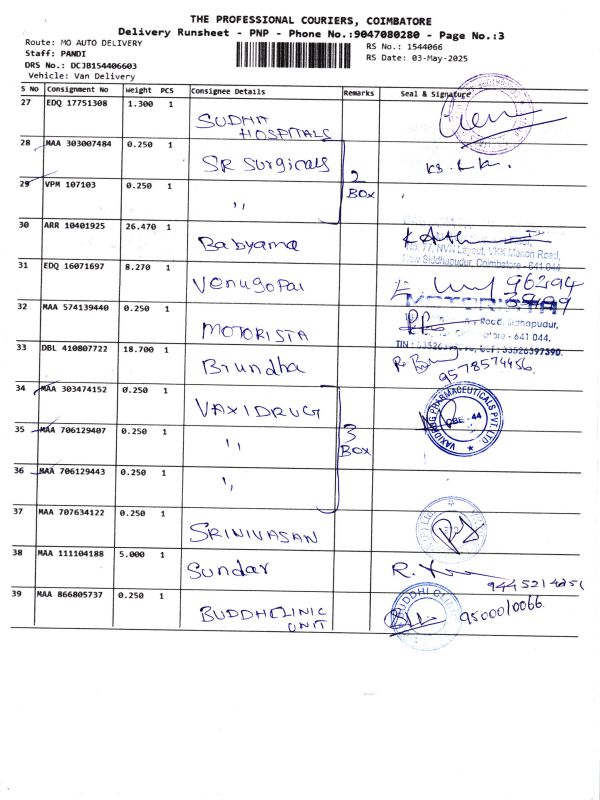 THE PROFESSIONAL COURIERS, COIMBATORE
Delivery Runsheet - PNP - Phone No.:9047080280 - Page No.:3
Route: MO AUTO DELIVERY
RS No.: 1544066
Staff: PANDI
RS Date: 03-May-2025
DRS No.: DCJB154406603
Vehicle: Van Delivery
S No Consignment No Weight PCS Consignee Details Remarks Seal & Signature
27 EDQ 17751308 1.300 1
SUDHA HOSPITALS
28 MAA 303007484 0.250 1
SR Surgicals
2 BOX
29 VPM 107103 0.250 1
"
30 ARR 10401925 26.470 1
Babyama
No. 77, NWV Layout, VKK Menon Road,
New Siddhapudur, Coimbatore - 641 044
31 EDQ 16071697 8.270 1
Venugopal
96294
32 MAA 574139440 0.250 1
MOTORISTA
MOTORISTA
Road, Sidhapudur,
- 641 044.
33 DBL 410807722 18.700 1
Brundha
9578574456.
34 MAA 303474152 0.250 1
VAXIDRUG
VAXIDRUG PHARMACEUTICALS PVT. LTD.
CBE - 44
3 BOX
35 MAA 706129407 0.250 1
"
36 MAA 706129443 0.250 1
"
37 MAA 707634122 0.250 1
SRINIVASAN
38 MAA 111104188 5.000 1
Sundar
39 MAA 866805737 0.250 1
BUDDHCLINIC
UNIT
BUDDHI CLINIC
9500010066.